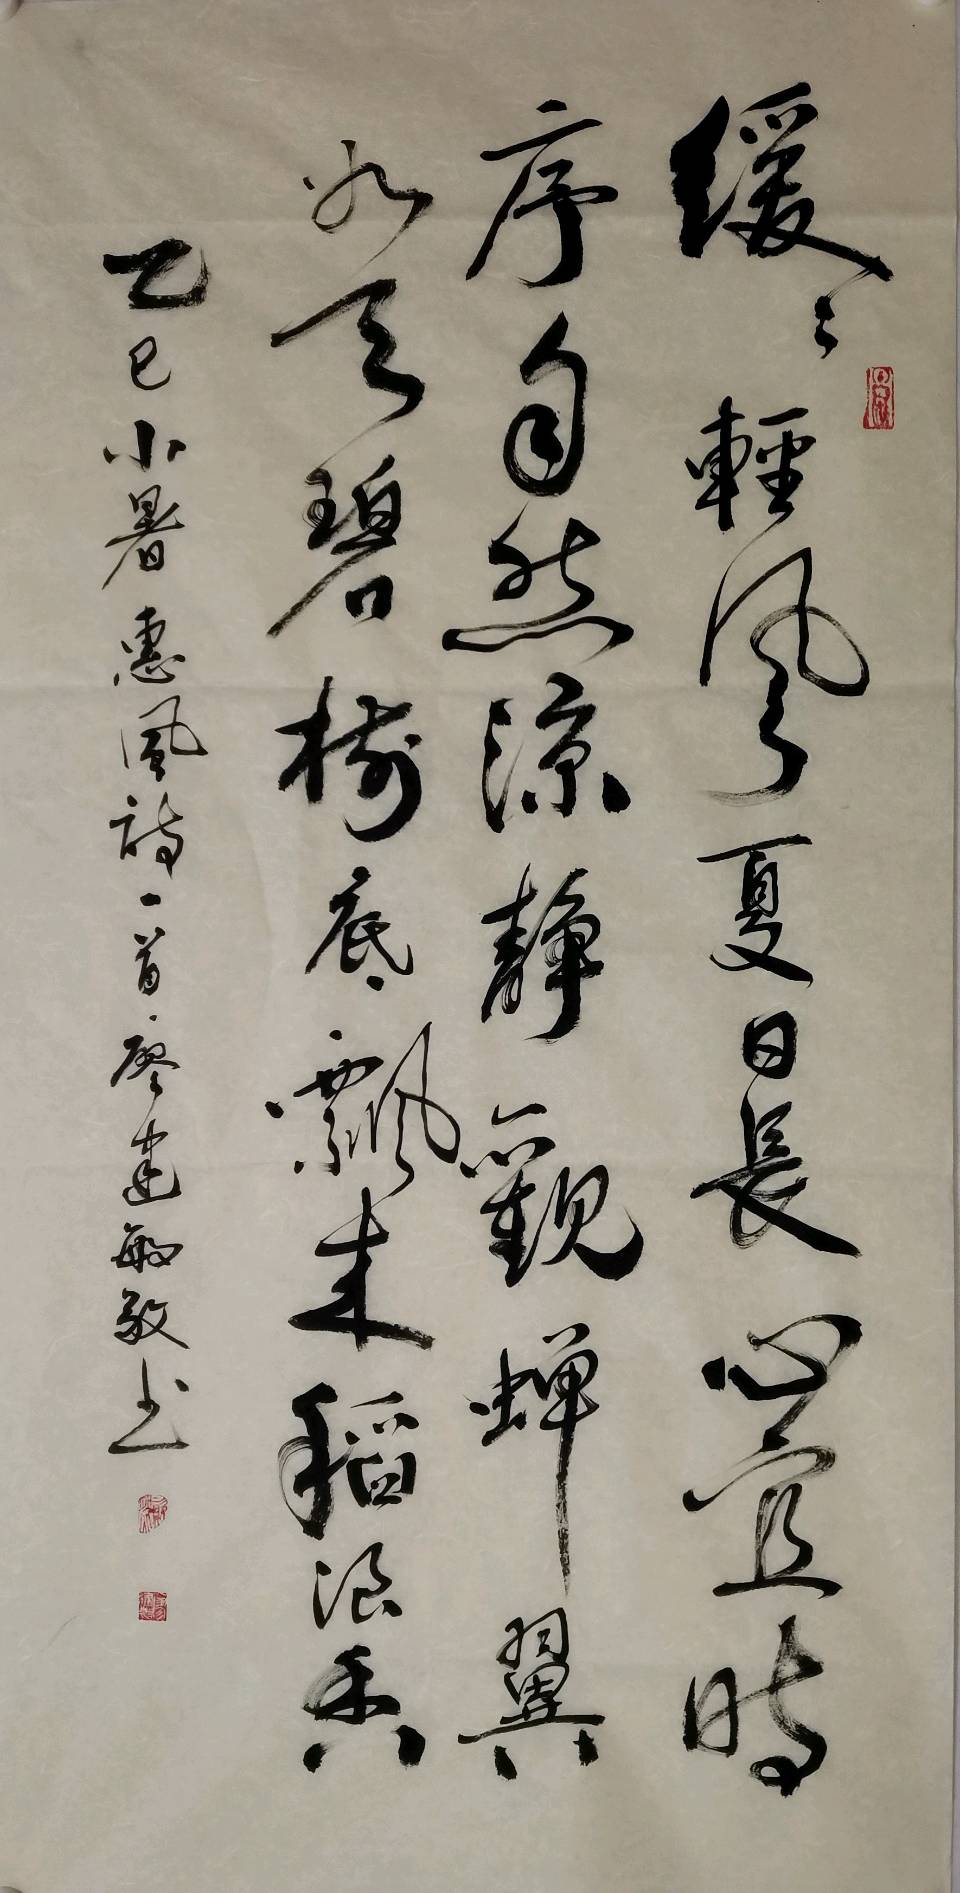 緩〻輕風夏日長心宜時
序自然涼靜觀蟬翼
冰天碧樹底飄來稻浪香
乙巳小暑惠風詩一首廖建敏敬书